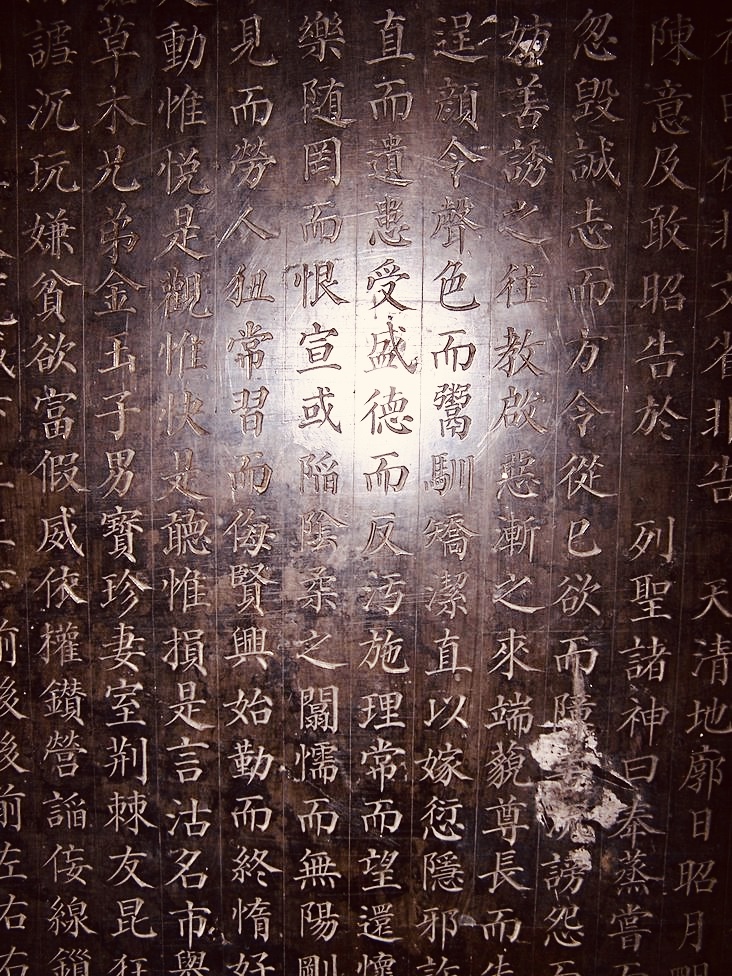 天清地廓日昭月
陳意及敢昭告於 列聖諸神曰奉蒸嘗
忽毀誠志而方令從已欲而謗怨
善誘之往教啟惡漸之來端藐尊長而
逞顔令聲色而鬻馴矯潔直以嫁愆隱邪
直而遺患受盛德而反污施理常而望還懷
樂随罔而恨宣或陷陰柔之闒懦而無陽剛
見而勞人狃常習而侮賢興始勤而終惰好
動惟悦是觀惟快是聽惟損是言沽名市譽
草木兄弟金玉子男寶珍妻室荆棘友昆狂
謔沉玩嫌貧欲富假威依權鑚營謟佞線鎻
前後後前左右右